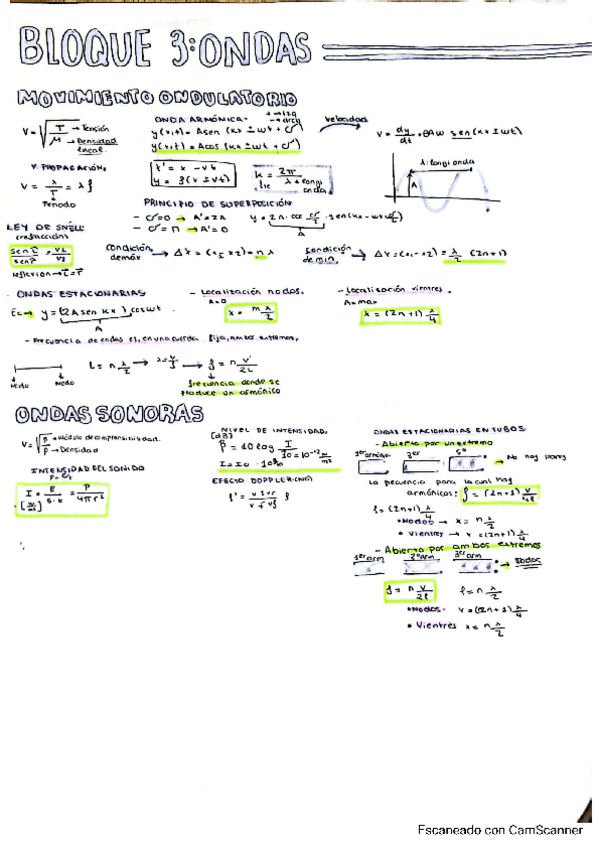 BLOQUE 3: ONDAS
MOVIMIENTO ONDULATORIO
V = √(T/M) → Tensión → Densidad lineal.
ONDA ARMÓNICA.
y(x,t) = A sen (kx ± ωt + δ)
y(x,t) = A cos (kx ± ωt + δ)
velocidad
V = dy/dt = ωA sen(kx ± ωt)
V. PROPAGACIÓN,
V = λ/T = λ f
Periodo
x' = x - vt
y = f(x ± vt)
k = 2π/λ → longi onda
λ: longi onda
A
PRINCIPIO DE SUPERPOSICIÓN
- δ=0 → A' = 2A
- δ = π → A' = 0
A
LEY DE SNELL
(refracción)
condición de máx → Δx = (x1 - x2) = nλ
condición de min. → Δx = (x1 - x2) = λ/2 (2n+1)
ONDAS ESTACIONARIAS
Ec → y = (2A sen kx) cos ωt
A
- Localización nodos.
A=0
- Localización vientres.
A=max
x = (2n+1) λ/4
- Frecuencia de ondas es, en una cuerda fija, ambos extremos,
L = n λ/2 → λ = v/f → f = n v/2L
Nodo Nodo
frecuencia donde se produce un armónico
ONDAS SONORAS
V = √(B/ρ) → Módulo de compresividad. → Densidad
INTENSIDAD DEL SONIDO
I = E/S·t = P/4πr²
NIVEL DE INTENSIDAD.
[dB]
β = 10 log I/I0 = 10⁻¹² w/m²
EFECTO DOPPLER
ONDAS ESTACIONARIAS EN TUBOS
- Abierto por un extremo
1er armón. 3er 5º → No hay pares
La frecuencia para la cual hay
armónicos: f = (2n+1) v/4l
l = (2n+1) λ/4
• Nodos → x = n λ/2
• Vientres → x = (2n+1) λ/4
- Abierto por ambos extremos
1er arm 2º arm 3er arm → Todos
f = n v/2l l = n λ/2
• Nodos. x = (2n+1) λ/4
• Vientres x = n λ/2
Escaneado con CamScanner